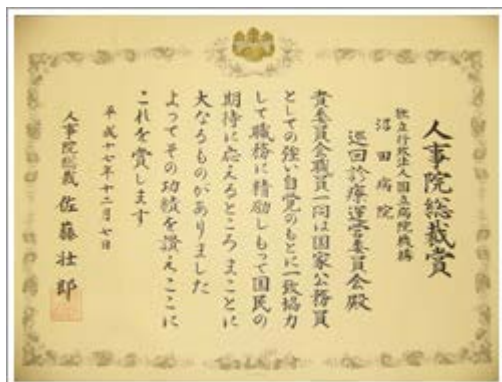 人事院総裁賞
独立行政法人国立病院機構
沼田病院
巡回診療運営委員会殿
貴委員会職員一同は国家公務員
としての強い自覚のもとに一致協力
して職務に精励しもって国民の
期待に応えるところまことに
大なるものがありました
よってその功績を讃えここに
これを賞します
平成十七年十二月七日
人事院総裁 佐藤壮郎